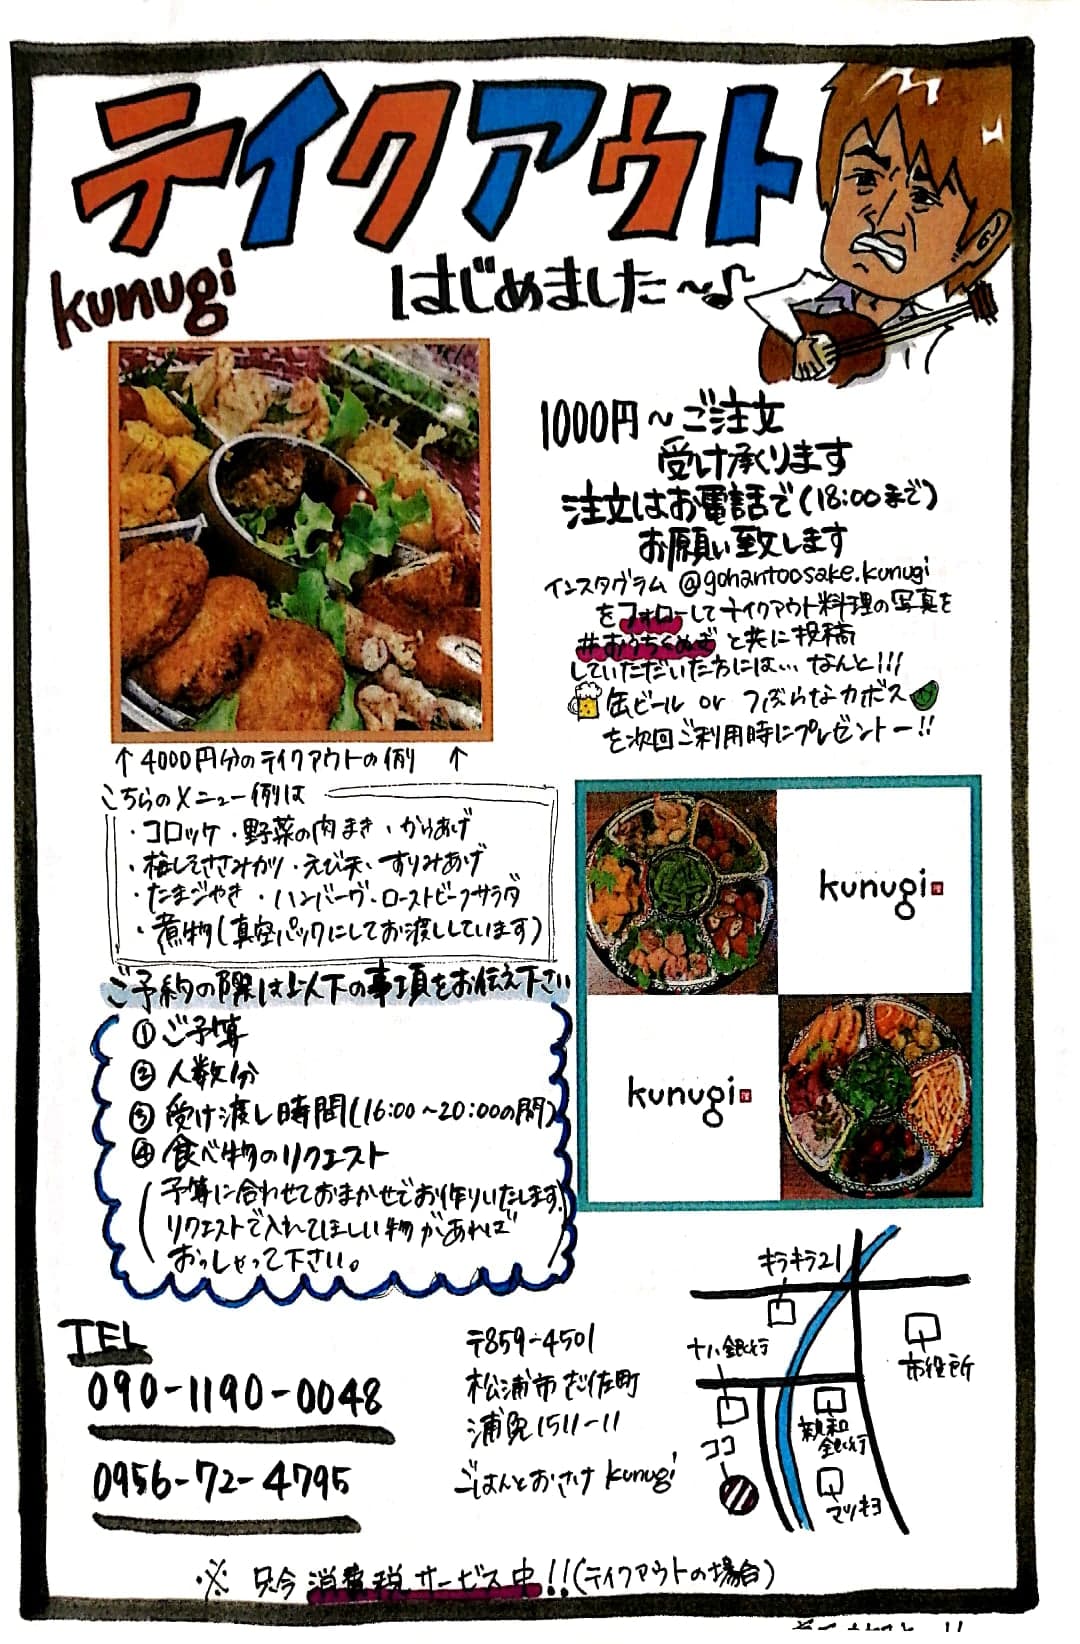 テイクアウト
kunugi
はじめました～♪
1000円～ご注文
受け承ります
注文はお電話で(18:00まで)
お願い致します
インスタグラム @gohantoosake.kunugi
をフォローしてテイクアウト料理の写真を
#おうちくぬぎ と共に投稿
していただいた方には… なんと!!!
缶ビール or つぶらなカボス
を次回ご利用時にプレゼントー!!
↑ 4000円分のテイクアウトの例 ↑
こちらのメニュー例は
・コロッケ ・野菜の肉まき ・からあげ
・梅しそささみカツ ・えび天 ・すりみあげ
・たまごやき ・ハンバーグ ・ローストビーフサラダ
・煮物(真空パックにしてお渡ししています)
kunugi
kunugi
ご予約の際は以下の事項をお伝え下さい
① ご予算
② 人数分
③ 受け渡し時間(16:00～20:00の間)
④ 食べ物のリクエスト
(予算に合わせておまかせでお作りいたします。
リクエストで入れてほしい物があれば
おっしゃって下さい。)
TEL
090-1190-0048
0956-72-4795
〒859-4501
松浦市志佐町
浦免1511-11
ごはんとおさけ kunugi
キラキラ21
十八銀行
市役所
親和
銀行
ココ
マツキヨ
※ 只今 消費税サービス中!!(テイクアウトの場合)